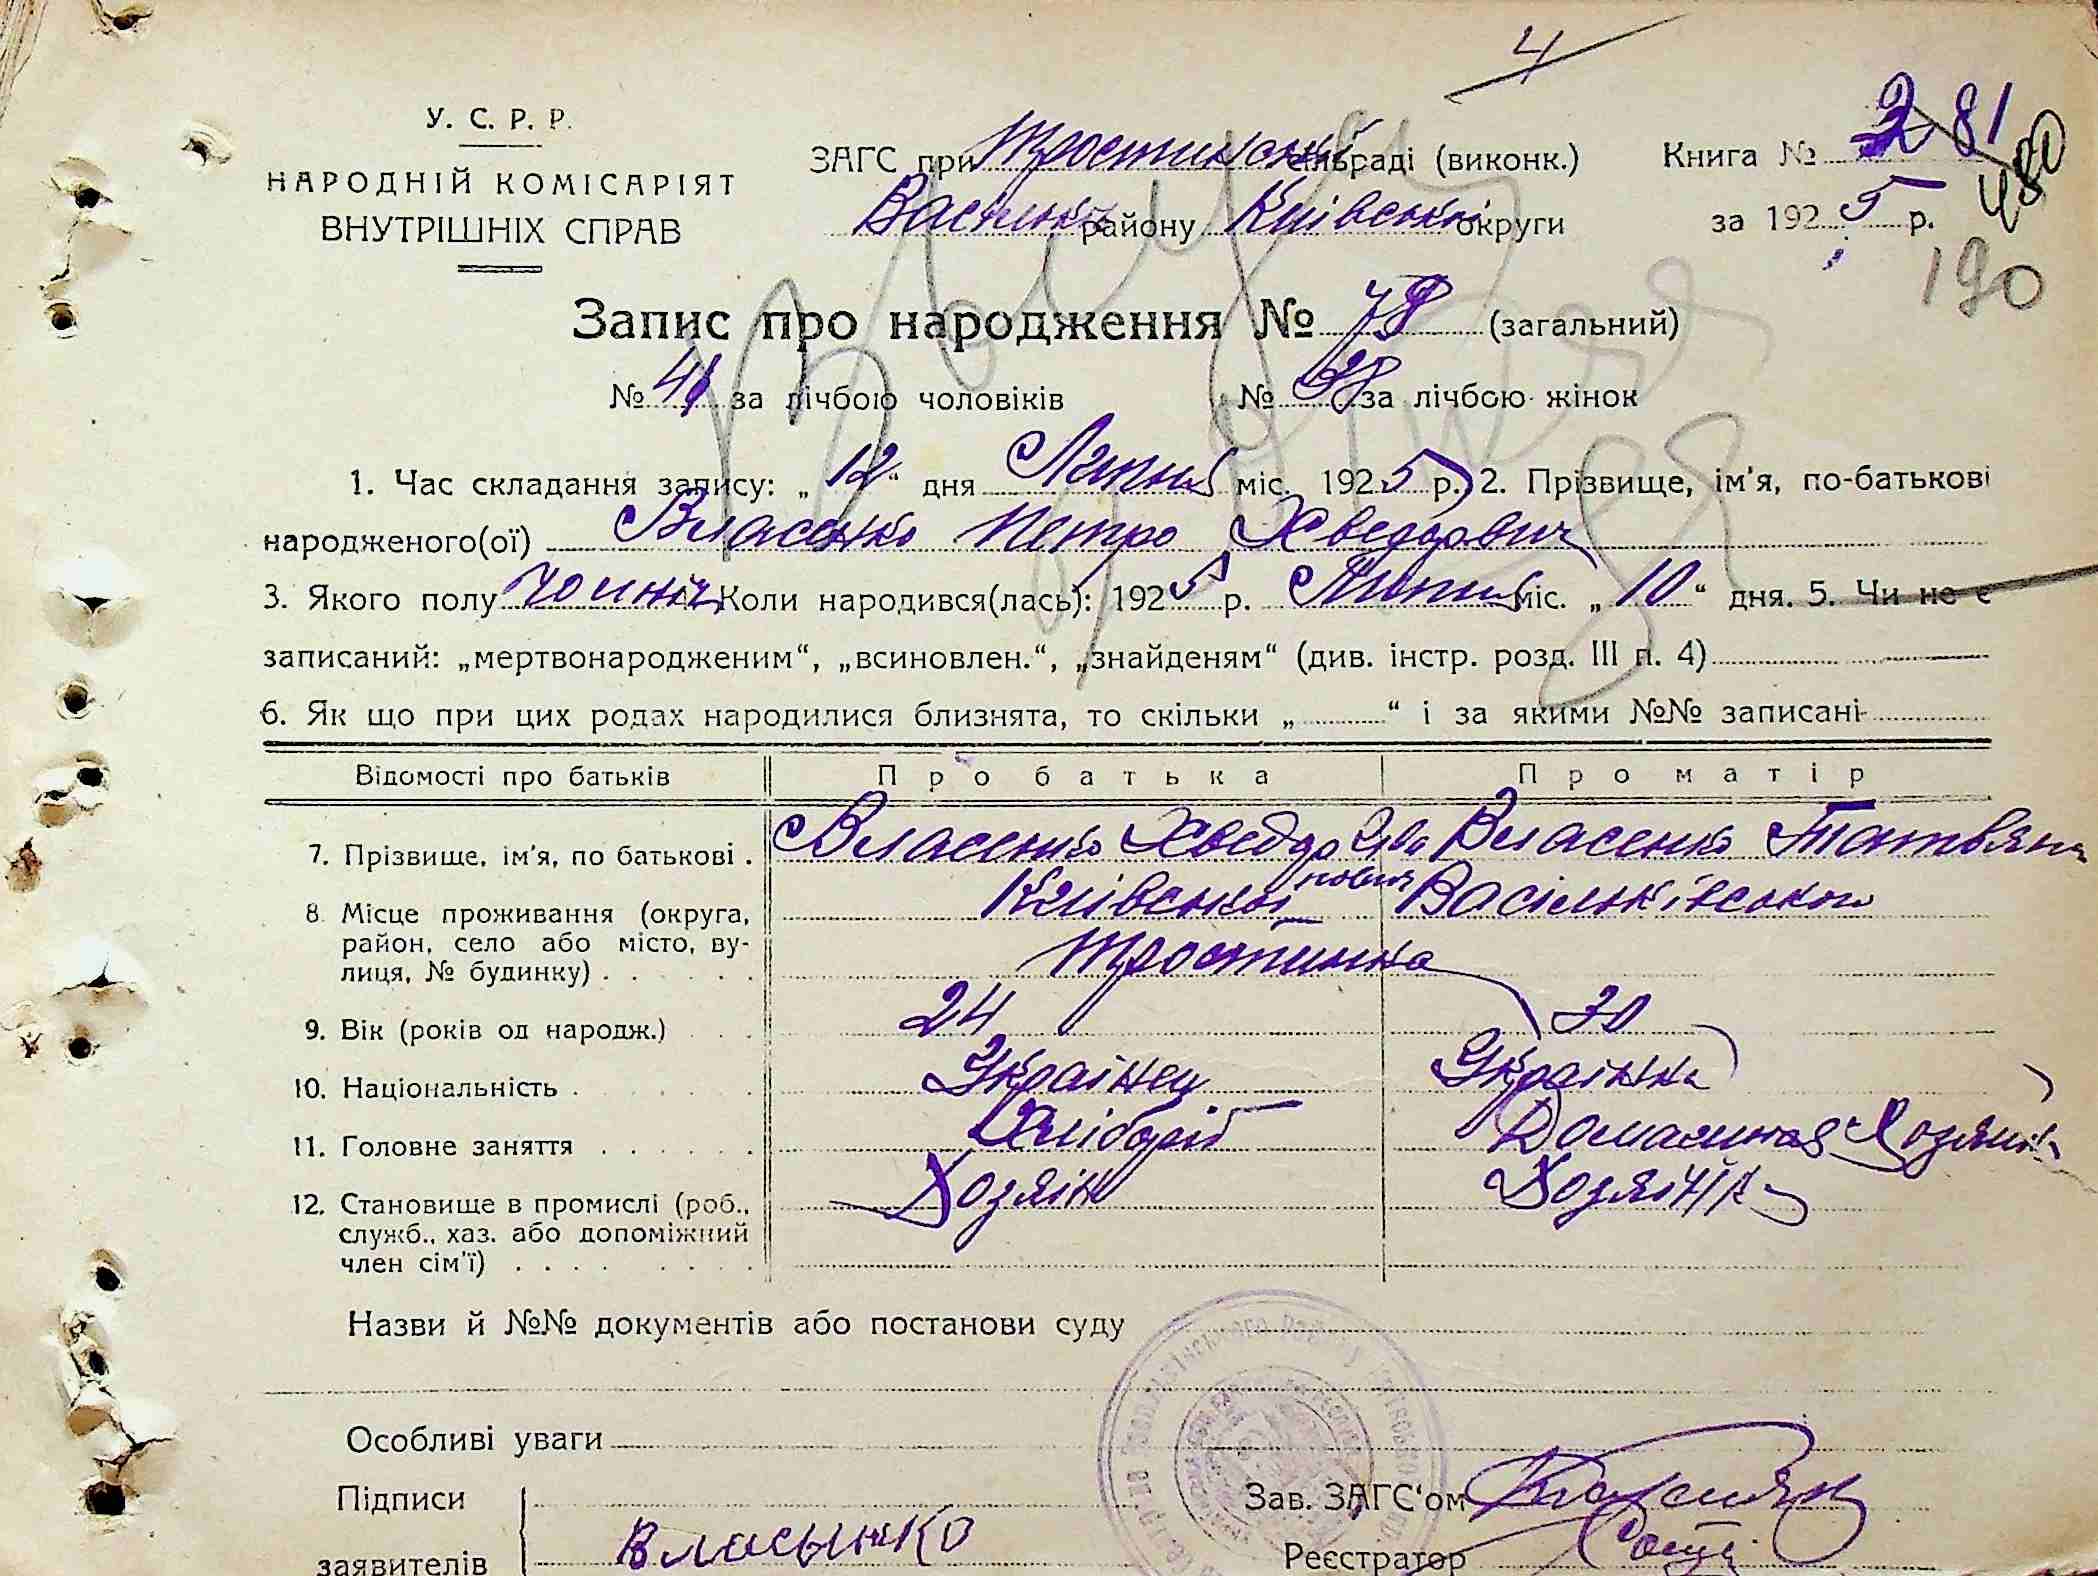 4
У. С. Р. Р.
НАРОДНІЙ КОМІСАРІЯТ
ВНУТРІШНІХ СПРАВ
ЗАГС при Тростинській сільраді (виконк.)
район у Київської округи
Книга № 2 81
480
за 1925 р.
190
Запис про народження № 78 (загальний)
№ за лічбою чоловіків № 38 за лічбою жінок
1. Час складання запису: „12“ дня Липня міс. 1925 р. 2. Прізвище, ім'я, по-батькові
народженого(ої) Власенко Петро Хведорович
3. Якого полу Коли народився(лась): 1925 р. Липня міс. „10“ дня. 5. Чи не є
записаний: „мертвонародженим“, „всиновлен.“, „знайденям“ (див. інстр. розд. III п. 4)
6. Як що при цих родах народилися близнята, то скільки „ “ і за якими №№ записані
Відомості про батьків Про батька Про матір
7. Прізвище, ім'я, по батькові . Власенко Хведор Власенко Татьяна
8. Місце проживання (округа, район, село або місто, вулиця, № будинку) Київської Васільківського
Тростинка
9. Вік (років од народж.) 24 30
10. Національність Українец Українка
11. Головне заняття Хлібороб Домашная Хозяйка
12. Становище в промислі (роб., служб., хаз. або допоміжний член сім'ї) Хозяін
Назви й №№ документів або постанови суду
Особливі уваги
Підписи
заявителів Власынко
Зав. ЗАГС'ом
Реєстратор